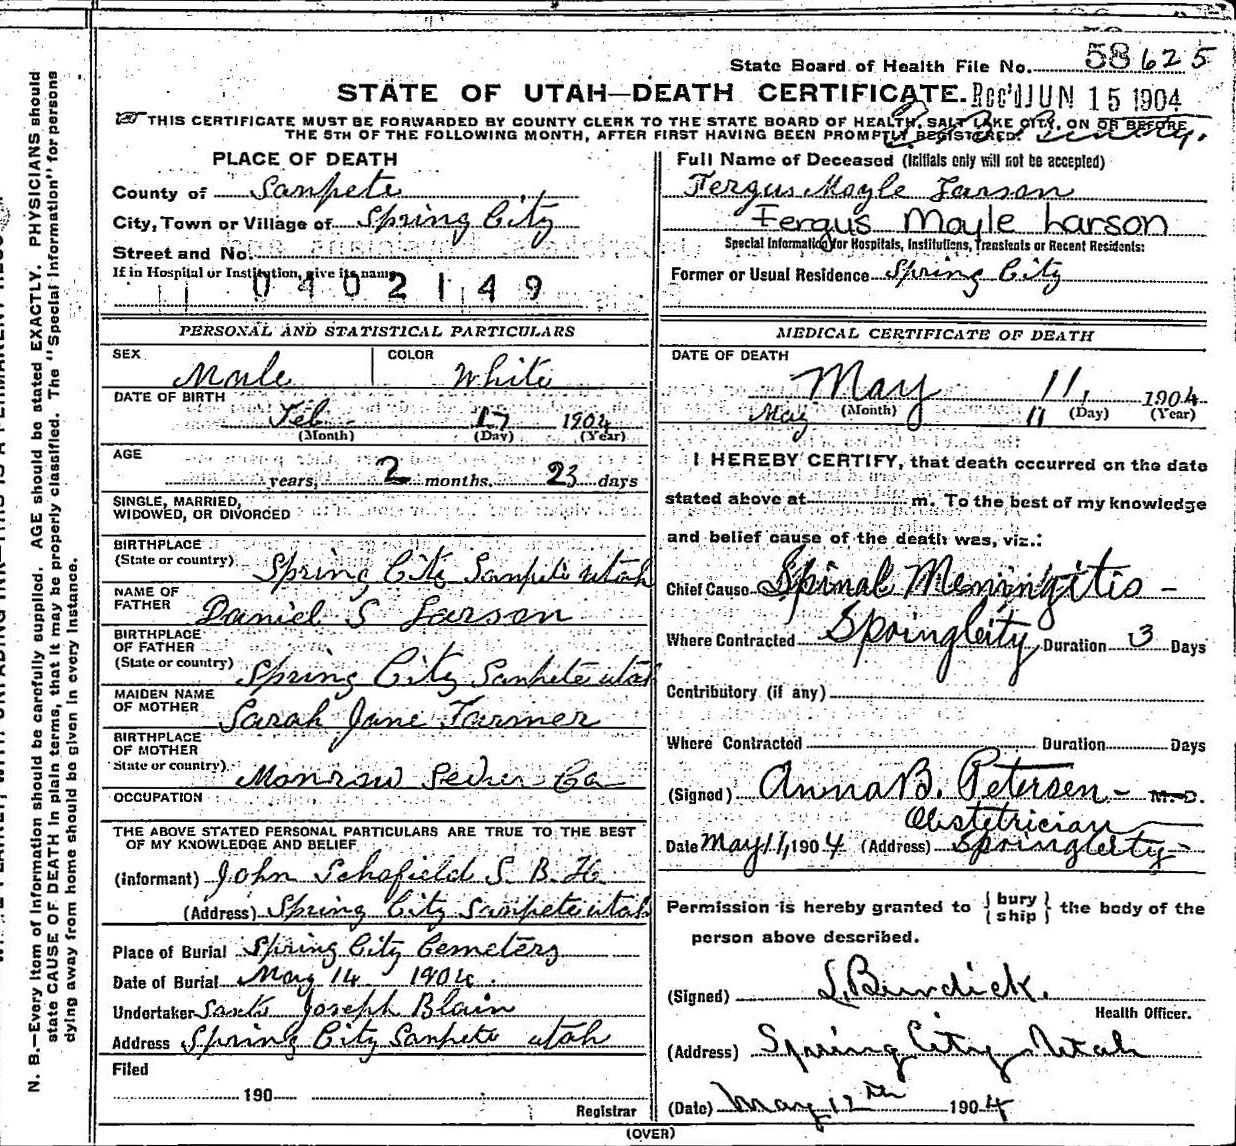 State Board of Health File No. 58625
STATE OF UTAH—DEATH CERTIFICATE. Rec'd JUN 15 1904
THIS CERTIFICATE MUST BE FORWARDED BY COUNTY CLERK TO THE STATE BOARD OF HEALTH, SALT LAKE CITY, ON OR BEFORE
THE 5TH OF THE FOLLOWING MONTH, AFTER FIRST HAVING BEEN PROMPTLY REGISTERED.
PLACE OF DEATH
County of Sanpete
City, Town or Village of Spring City
Street and No.
If in Hospital or Institution, give its name
0402149
Full Name of Deceased (Initials only will not be accepted)
Fergus Mayle Larson
Fergus Mayle Larson
Special Information for Hospitals, Institutions, Transients or Recent Residents:
Former or Usual Residence Spring City
PERSONAL AND STATISTICAL PARTICULARS
SEX Male COLOR White
DATE OF BIRTH
Feb 17 1904
(Month) (Day) (Year)
AGE
years, 2 months, 23 days
SINGLE, MARRIED,
WIDOWED, OR DIVORCED
BIRTHPLACE
(State or country) Spring City Sanpete Utah
NAME OF
FATHER Daniel S Larson
BIRTHPLACE
OF FATHER
(State or country) Spring City Sanpete Utah
MAIDEN NAME
OF MOTHER Sarah Jane Farmer
BIRTHPLACE
OF MOTHER
State or country) Monrow Sevier Co
OCCUPATION
THE ABOVE STATED PERSONAL PARTICULARS ARE TRUE TO THE BEST
OF MY KNOWLEDGE AND BELIEF
(Informant) John Schofield S. B. H.
(Address) Spring City Sanpete Utah
Place of Burial Spring City Cemetery
Date of Burial May 14 1904.
Undertaker Joseph Blain
Address Spring City Sanpete Utah
Filed
190
Registrar
MEDICAL CERTIFICATE OF DEATH
DATE OF DEATH
May 11, 1904
May (Month) 11 (Day) (Year)
I HEREBY CERTIFY, that death occurred on the date
stated above at m. To the best of my knowledge
and belief cause of the death was, viz.:
Chief Cause Spinal Meningitis -
Where Contracted Spring City Duration 3 Days
Contributory (if any)
Where Contracted Duration Days
(Signed) Anna B. Petersen - M. D.
Obstetrician
Date May 11, 1904 (Address) Spring City
Permission is hereby granted to {bury
ship} the body of the
person above described.
(Signed) L. Burdick.
Health Officer.
(Address) Spring City Utah
(Date) May 12th 1904
(OVER)
N. B.—Every item of information should be carefully supplied. AGE should be stated EXACTLY. PHYSICIANS should
state CAUSE OF DEATH in plain terms, that it may be properly classified. The "Special Information" for persons
dying away from home should be given in every instance.